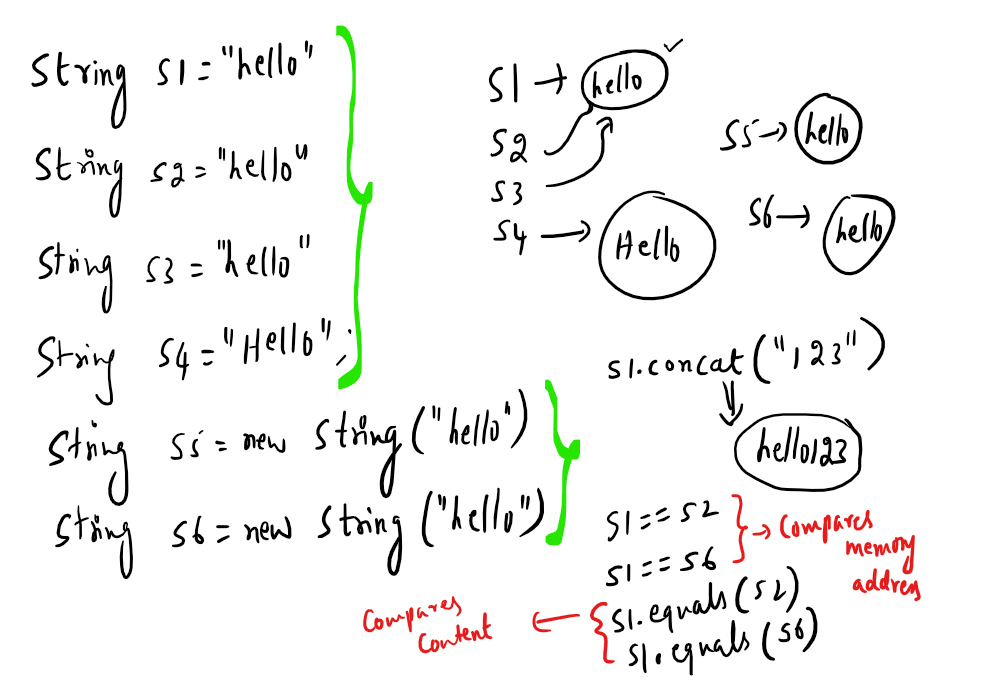 String s1 = "hello"
String s2 = "hello"
String s3 = "hello"
String s4 = "Hello";
String s5 = new String("hello")
String s6 = new String("hello")
s1 → hello ✓
s2
s3
s4 → Hello
s5 → hello
s6 → hello
s1.concat("123")
hello123
s1 == s2
s1 == s6
→ Compares
memory
address
s1.equals(s2)
s1.equals(s6)
Compares
Content